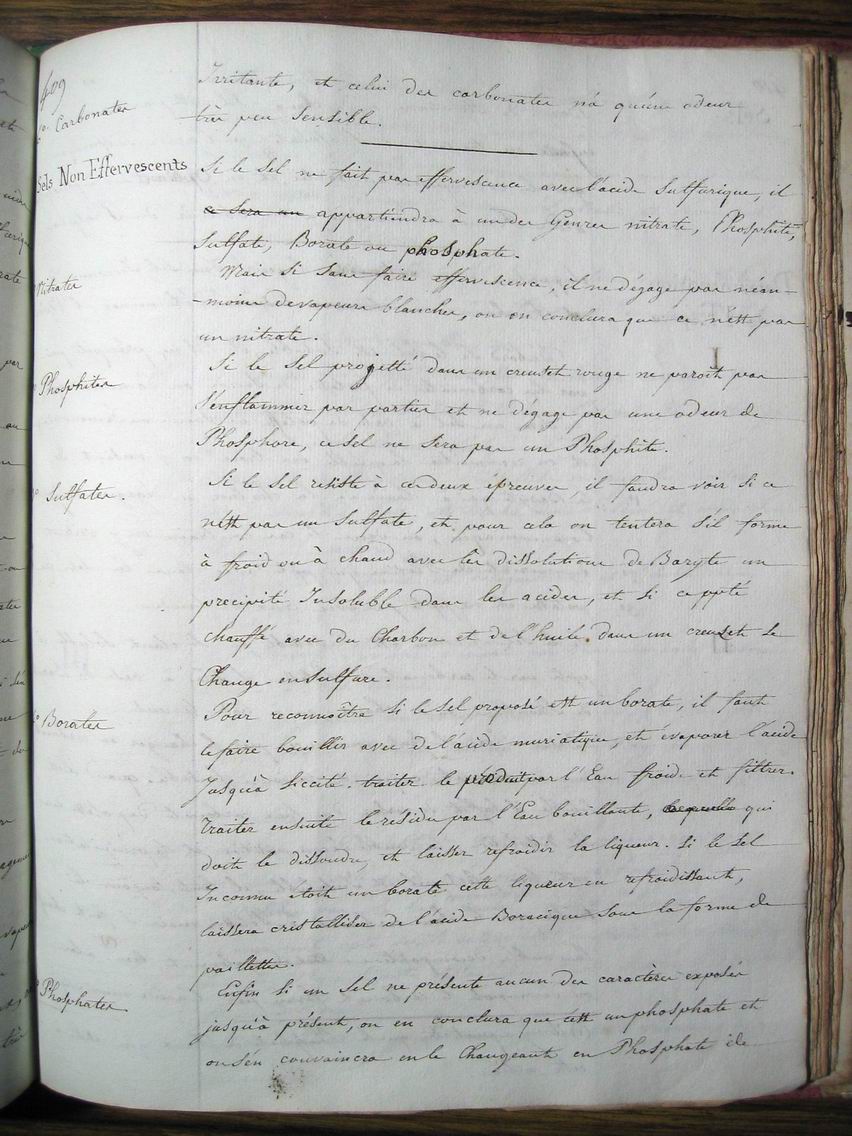 409
6o. Carbonates
Irritante, et celui des carbonates n'a qu'une odeur
très peu sensible.
Sels Non Effervescents
Si le Sel ne fait pas effervescence avec l'acide Sulfurique, il
ce sera un appartiendra à un des Genres nitrate, Phosphite,
Sulfate, Borate ou phosphate.
Nitrates
Mais si sans faire effervescence, il ne dégage pas néan-
-moins de vapeurs blanches, on en conclura que ce n'est pas
un nitrate.
Phosphites
Si le Sel projetté dans un creuset rouge ne paroit pas
s'enflammer par parties et ne dégage pas une odeur de
Phosphore, ce sel ne sera pas un Phosphite.
Sulfates.
Si le Sel résiste à ces deux épreuves, il faudra voir si ce
n'est pas un Sulfate, et pour cela on tentera s'il forme
à froid ou à chaud avec les dissolutions de Baryte un
précipité Insoluble dans les acides, et si ce ppté
chauffé avec du Charbon et de l'huile dans un creuset se
Change en sulfure.
Borates
Pour reconnoître si le Sel proposé est un borate, il faut
le faire bouillir avec de l'acide muriatique, et évaporer l'acide
Jusqu'à siccité. traiter le produit par l'Eau froide et filtrer.
Traiter ensuite le résidu par l'Eau bouillante, laquelle qui
doit le dissoudre, et laisser refroidir la liqueur. Si le Sel
Inconnu étoit un borate cette liqueur en refroidissant,
laissera cristalliser de l'acide Boracique sous la forme de
paillettes.
Phosphates
Enfin si un Sel ne présente aucun des caractères exposés
jusqu'à présent, on en conclura que c'est un phosphate et
on s'en convaincra en le Changeant en Phosphate de